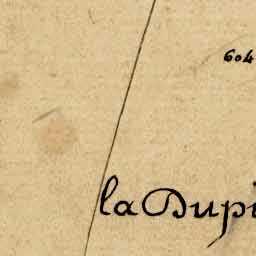 604
la Dupi